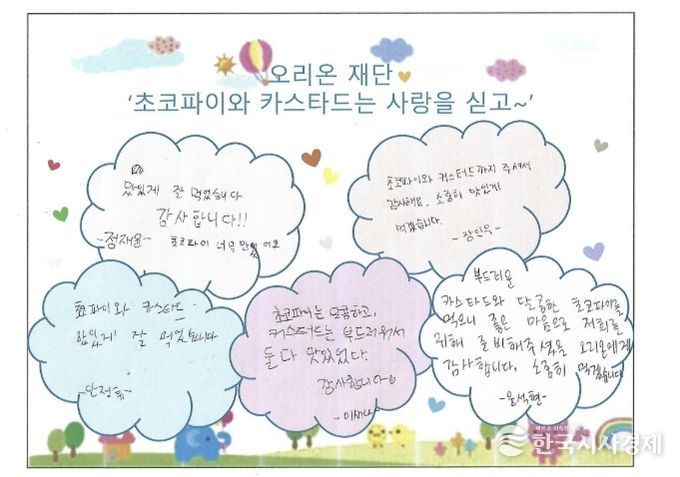 오리온 재단
'초코파이와 카스타드는 사랑을 싣고~'
맛있게 잘 먹었습니다
감사합니다!!
-정재윤- 초코파이 너무 맛있어요
초코파이와 커스터드까지 주셔서
감사해요. 소중히 맛있게
먹겠습니다.
- 장인우 -
초코파이와 카스타드
맛있게 잘 먹었습니다
초코파이는 달콤하고,
커스터드는 부드러워서
둘 다 맛있었다.
감사합니다
부드러운
카스타드와 달콤한 초코파이를
먹으니 좋은 마음으로 저희를
위해 준비해주셨을 오리온에게
감사합니다. 소중히 먹겠습니다
-윤석현-
한국시사경제